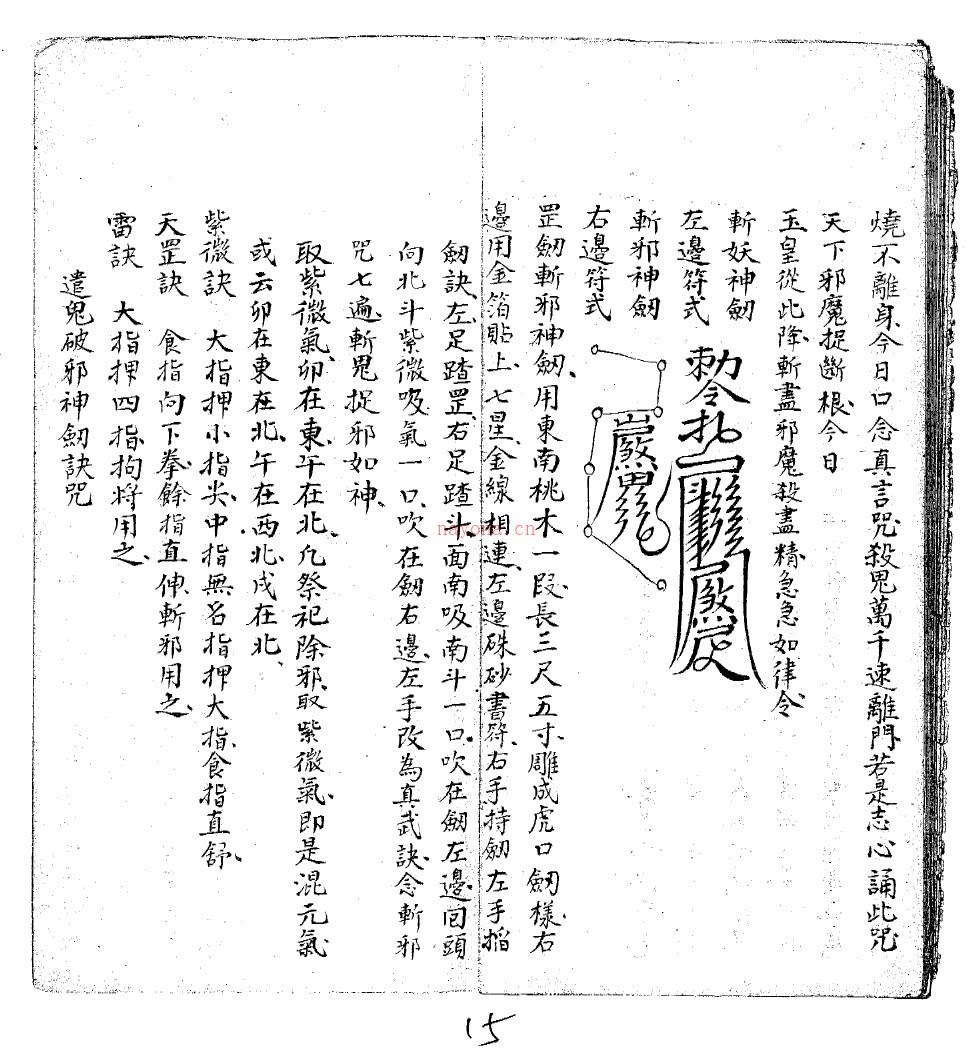 燒不離身今日口念真言咒殺鬼萬千速離門若是志心誦此咒
天下邪魔捉斷根今日
玉皇從此降斬盡邪魔殺盡精急急如律令
斬妖神劒
左邊符式
勅令
斬邪神劒
右邊符式
罡劒斬邪神劒用東南桃木一段長三尺五寸雕成虎口劒樣右
邊用金箔貼上七星金線相連左邊硃砂書符右手持劒左手掐
劒訣左足踏罡右足踏斗面南吸南斗一口吹在劒左邊回頭
向北斗紫微吸氣一口吹在劒右邊左手改為真武訣念斬邪
咒七遍斬鬼捉邪如神
取紫微氣卯在東午在北凡祭祀除邪取紫微氣即是混元氣
或云卯在東在北午在西北戌在北
紫微訣 大指押小指尖中指無名指押大指食指直舒
天罡訣 食指向下拳餘指直伸斬邪用之
雷訣 大指押四指拘將用之
遣鬼破邪神劒訣咒
nayona.cn
15